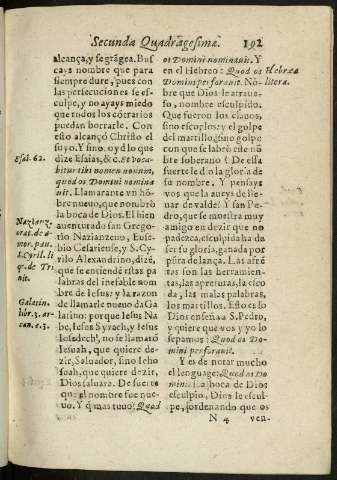 Secunda Quadragesimæ. 192
alcança, y se grãgea. Bus
cays nombre que para
siempre dure, pues con
las persecuciones se es-
culpe, y no ayays miedo
que todos los cõtrarios
puedan borrarle. Con
esto alcançò Christo el
suyo. Y sino, oyd lo que
dize Esaias, &c. Et voca-
bitur tibi nomen nouum,
quod os Domini nomina
uit. Llamarante vn nõ-
bre nueuo, que nombrò
la boca de Dios. El bien
auenturado san Grego-
rio Nazianzeno, Euse-
bio Cesariense, y S. Cy-
rilo Alexandrino, dizẽ,
que se entiendẽ estas pa
labras del inefable nom
bre de Iesus: y la razon
de llamarle nueuo da Ga
latino: porque Iesus Na
be, Iesus Syrach, y Iesus
Iosedech, no se llamarõ
Iesuah, que quiere de-
zir, Saluador, sino Ieho
suah, que quiere dezir,
Dios saluara. De suerte
que el nombre fue nue-
uo. Y q̃ mas tuuo? Quod
Esai. 62.
Nazianz.
orat. de a-
mor. pau.
S. Cyril. li
q. de Tri
nit.
Galatin.
libr. 3. ar-
can. c. 3.
os Domini nominauit. Y
en el Hebreo: Quod os
Domini perforauit. Nõ-
bre que Dios le atraue-
so, nombre esculpido.
Que fueron los clauos,
sino escoplos: y el golpe
del martillo, sino golpe
con que se labrò este nõ
bre soberano? De essa
suerte le diò la gloria de
su nombre, Y pensays
vos que la aueys de lle-
uar de valde? Y san Pe-
dro, que se muestra muy
amigo en dezir que no
padezca, esculpida ha de
ser su gloria, ganada por
pũta de lança. Las afrẽ
tas son las herramien-
tas, las apreturas, la cico
da, las malas palabras,
los martillos. Esto es lo
Dios enseña a S. Pedro,
y quiere que vos y yo lo
sepamos: Quod os Do-
mini perforauit.
Y es de notar mucho
el lenguage: Quod os Do
mini. La boca de Dios
esculpio, Dios le escul-
pe, ordenando que os
Hebræa
litera.
N 4 ven-